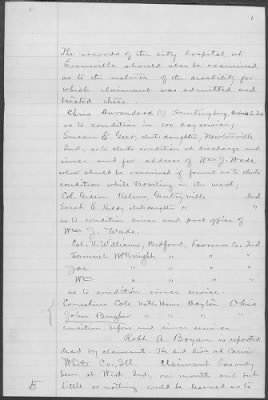 1
The records of the city hospital at
Evansville should also be examined
as to the nature of the disability for
which claimant was admitted and
treated there.
Chris (?) Huntingburg, Ind
as to condition in 100 day service,
Susan E. Geer, clmts daughter, Newtonville
Ind, as to clmts condition at discharge and
since and for address of Wm J. Wade
who should be examined if found as to clmts
condition while traveling in the west,
Col. Gideon Nelson, Gentryville Ind
Sarah E. clmts daughter " "
as to condition since and post office of
Wm J. Wade.
Col. V. Williams, Bedford, Lawrence Co, Ind
Samuel McKnight " " "
Jas " " "
Wm " " "
as to condition since service.
Cornelius Cole Natl. Home Dayton Ohio
John " " "
condition before and since service
Robt A. Bryan is reported
dead by claimant. He did live at Carmi
White Co, Ill. Claimant has only
been at West, Ind, one month and but
little or nothing could be learned as to